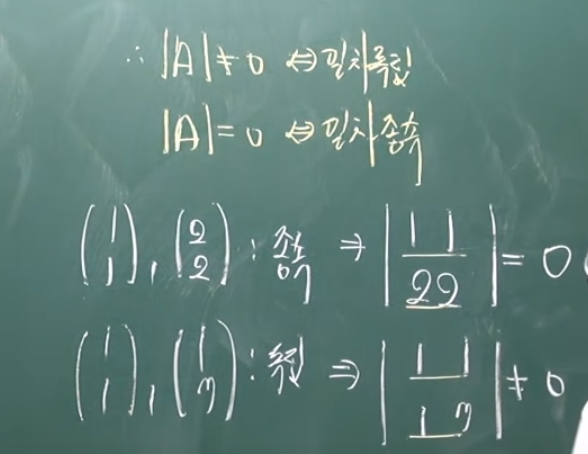 ∴ |A| ≠ 0 ⇔ 일차독립
|A| = 0 ⇔ 일차종속
(1 1), (2 2) : 종속 ⇒ |1 1 / 2 2| = 0
(1 1), (1 3) : 독립 ⇒ |1 1 / 1 3| ≠ 0